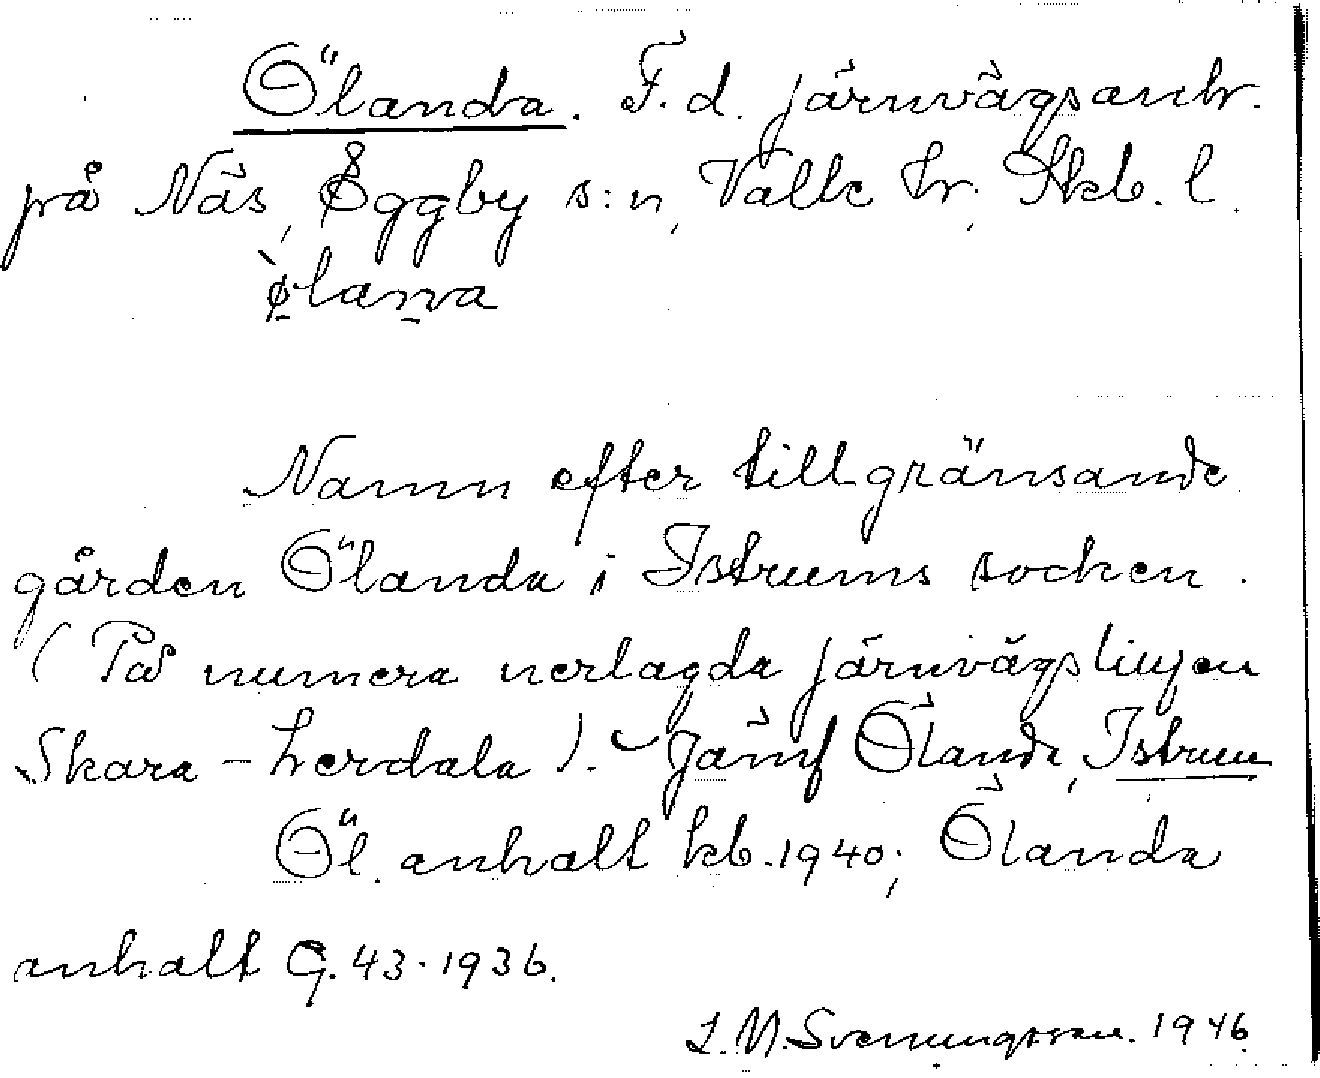 Ölanda. F.d. järnvägsanh.
på Näs, Eggby s:n, Valle hr, Skb. l.
ø̀lanna
Namn efter tillgränsande
gården Ölanda i Istrums socken.
(På numera nerlagda järnvägslinjen
Skara - Lerdala). - Jämf Ölanda, Istrum
Öl. anhalt kb. 1940; Ölanda
anhalt G. 43. 1936.
L.M. Svenungsson. 1946.